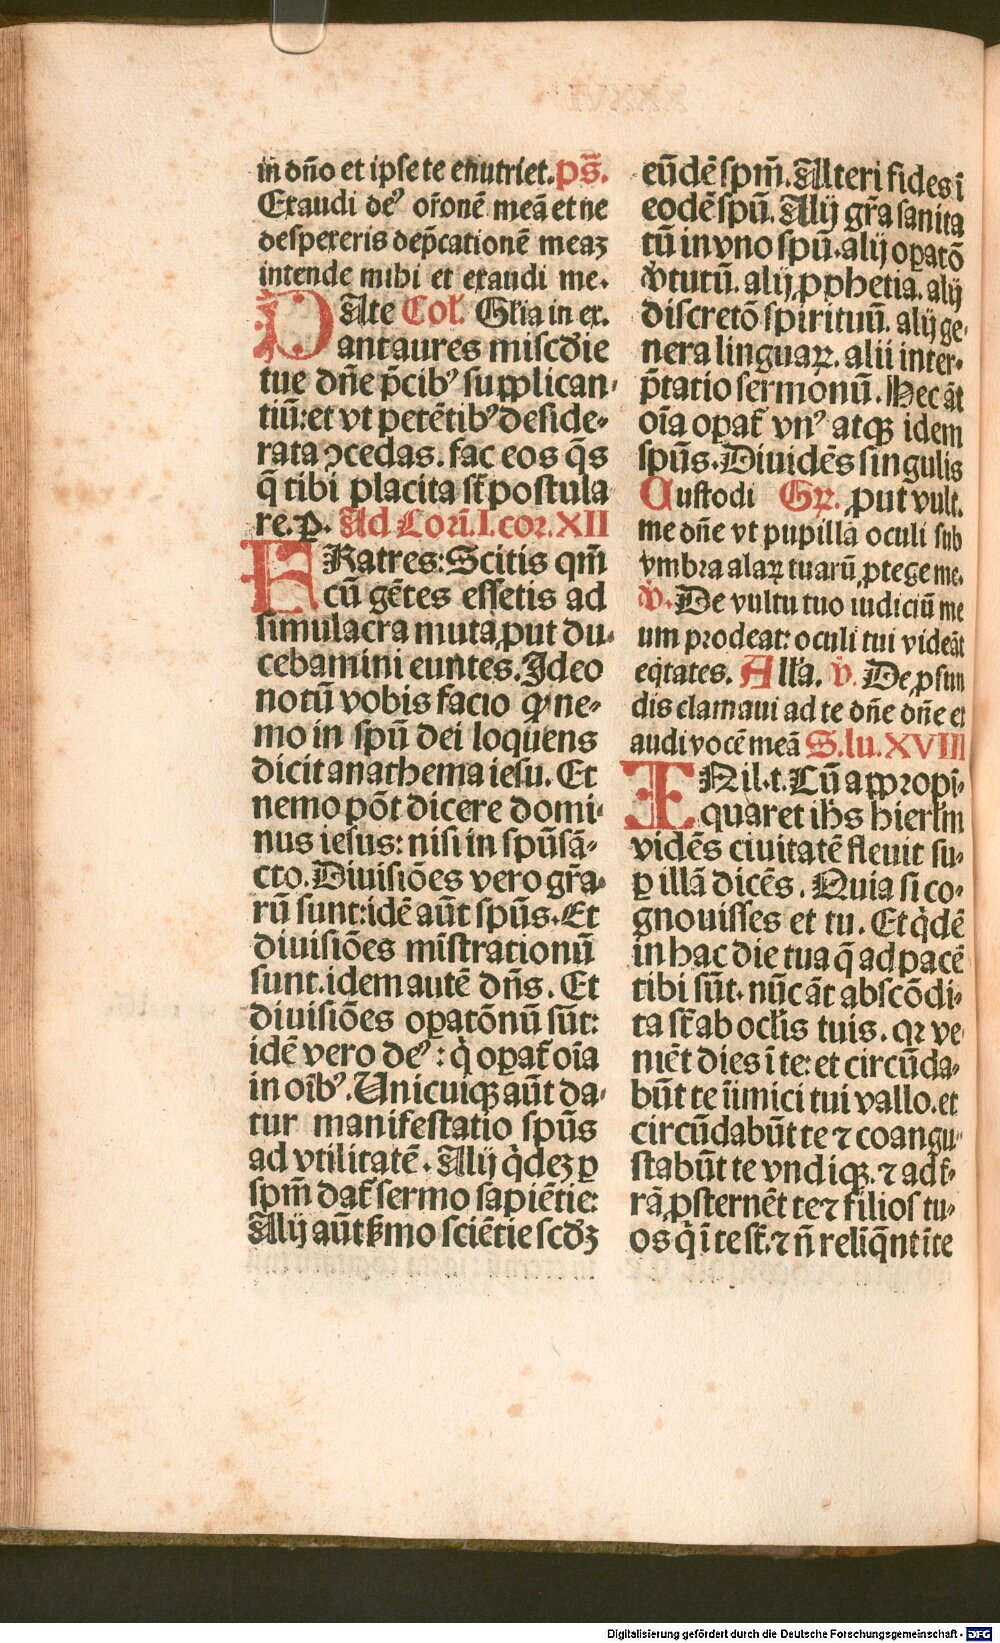 in dño et ipse te enutriet. ps̄.
Exaudi deꝰ or̄onē meā et ne
despexeris dep̄cationē meaꝫ
intende mihi et exaudi me.
Ate Col̄. Gl̄ia in ex.
Dant aures miscd̄ie
tue dn̄e p̄cibꝰ supplican-
tiū: et vt petētibꝰ deside-
rata ꝯcedas. fac eos q̄s
q̄ tibi placita st̄ postula
re. ꝑ. Ad Corī. I. cor. XII
FRatres: Scitis qm̄
cū gētes essetis ad
simulacra muta ꝓut du-
cebamini euntes. Ideo
notū vobis facio ꝙ ne-
mo in spū dei loquens
dicit anathema iesu. Et
nemo pōt dicere domi-
nus iesus: nisi in spūsā-
cto. Diuisiōes vero gr̄a-
rū sunt: idē aūt spūs. Et
diuisiōes mīstrationū
sunt. idem autē dn̄s. Et
diuisiōes oꝑatōnū sūt:
idē vero deꝰ: q̇ oꝑat̄ oīa
in oībꝰ. Unicuiqꝫ aūt da-
tur manifestatio spūs
ad vtilitatē. Alij q̇deꝫ ꝑ
spm̄ dat̄ sermo sapiētie:
Alij aūt ẜmo sciētie scd̄ꝫ
eūdē spm̄. Alteri fides ī
eodē spū. Alij gr̄a sanita
tū in vno spū. alij oꝑatō
v̇tutū. alij ꝓphetia. alij
discretō spirituū. alij ge-
nera linguaꝝ. alii inter-
p̄tatio sermonū. Hec āt
oīa oꝑat̄ vnꝰ atqꝫ idem
spūs. Diuidēs singulis
Custodi Gꝝ. ꝓut vult.
me dn̄e vt pupillā oculi sub
vmbra alaꝝ tuarū ꝓtege me.
v̇. De vultu tuo iudiciū me
um prodeat: oculi tui videāt
eq̇tates. All̄a. v̇. De ꝓfun
dis clamaui ad te dn̄e dn̄e ex
audi vocē meā S. lu. XVIII
INil. t. Cū appropī-
quaret ih̄s hierl̄m
vidēs ciuitatē fleuit su-
ꝑ illā dicēs. Quia si co-
gnouisses et tu. Et q̇dē
in hac die tua q̄ ad pacē
tibi sūt. nūc āt abscōdi-
ta st̄ ab ocl̄is tuis. qꝛ ve
niēt dies ī te: et circūda-
būt te iīmici tui vallo. et
circūdabūt te ⁊ coangu-
stabūt te vndiqꝫ. ⁊ ad t̄-
rā ꝓsternēt te ⁊ filios tu-
os q̇ ī te st̄. ⁊ n̄ relīq̄nt ī te
Digitalisierung gefördert durch die Deutsche Forschungsgemeinschaft - DFG